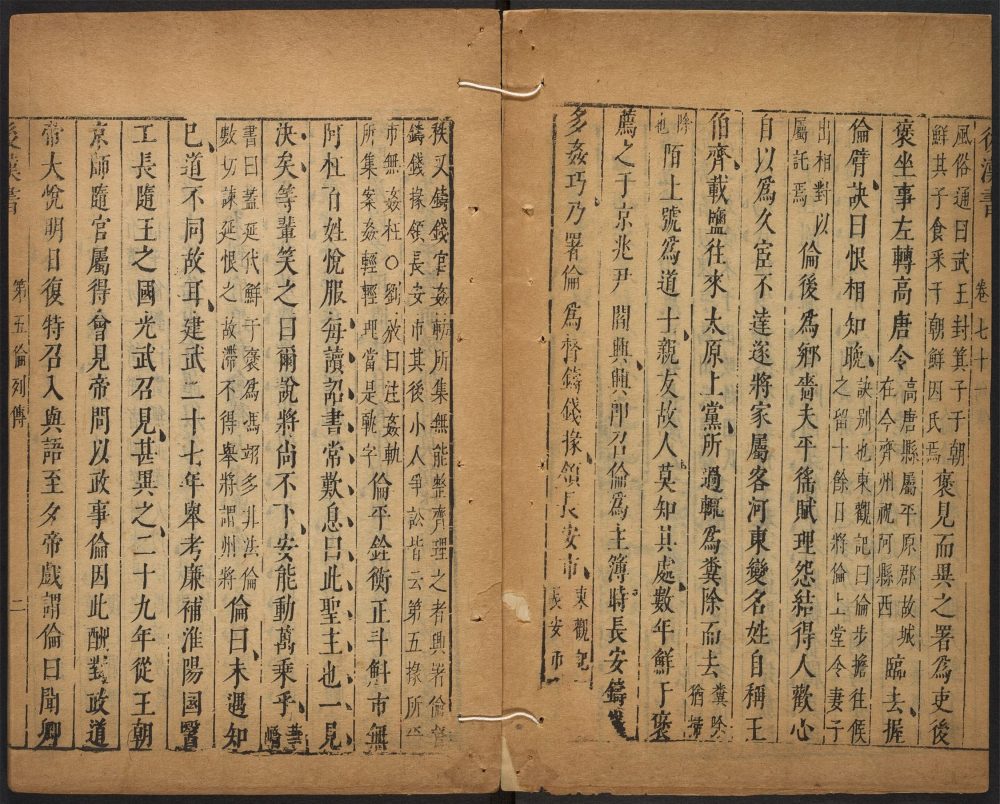 後漢書 卷七十一
風俗通曰武王封箕子于朝
鮮其子食采于朝鮮因氏焉
褒見而異之署為吏後
褒坐事左轉高唐令
高唐縣屬平原郡故城
在今齊州祝阿縣西
臨去握
倫臂訣曰恨相知晚
訣別也東觀記曰倫步擔往候
之留十餘日將倫上堂令妻子
出相對以
屬託焉
倫後為鄉嗇夫平徭賦理怨結得人歡心
自以為久宦不達遂將家屬客河東變名姓自稱王
伯齊載鹽往來太原上黨所過輒為糞除而去
糞除
猶掃
除
也
陌上號為道士親友故人莫知其處數年鮮于褒
薦之于京兆尹閻興興即召倫為主簿時長安鑄錢
多姦巧乃署倫為督鑄錢掾領長安市
東觀記
長安市
秩又鑄錢官姦軌所集無能整齊理之者興署倫督
鑄錢掾領長安市其後小人爭訟皆云第五掾所平
市無姦枉○劉攽曰注姦軌
所集案姦輕輕理當是軌字
倫平銓衡正斗斛市無
阿枉百姓悅服每讀詔書常歎息曰此聖主也一見
決矣等輩笑之曰爾說將尚不下安能動萬乘乎
書曰蓋延代鮮于褒為馮翊多非法倫
數切諫延恨之故滯不得舉將謂州將
倫曰未遇知
已道不同故耳建武二十七年舉孝廉補淮陽國醫
工長隨王之國光武召見甚異之二十九年從王朝
京師隨官屬得會見帝問以政事倫因此酬對政道
帝大悅明日復特召入與語至夕帝戲謂倫曰聞卿
後漢書 第五倫列傳 二